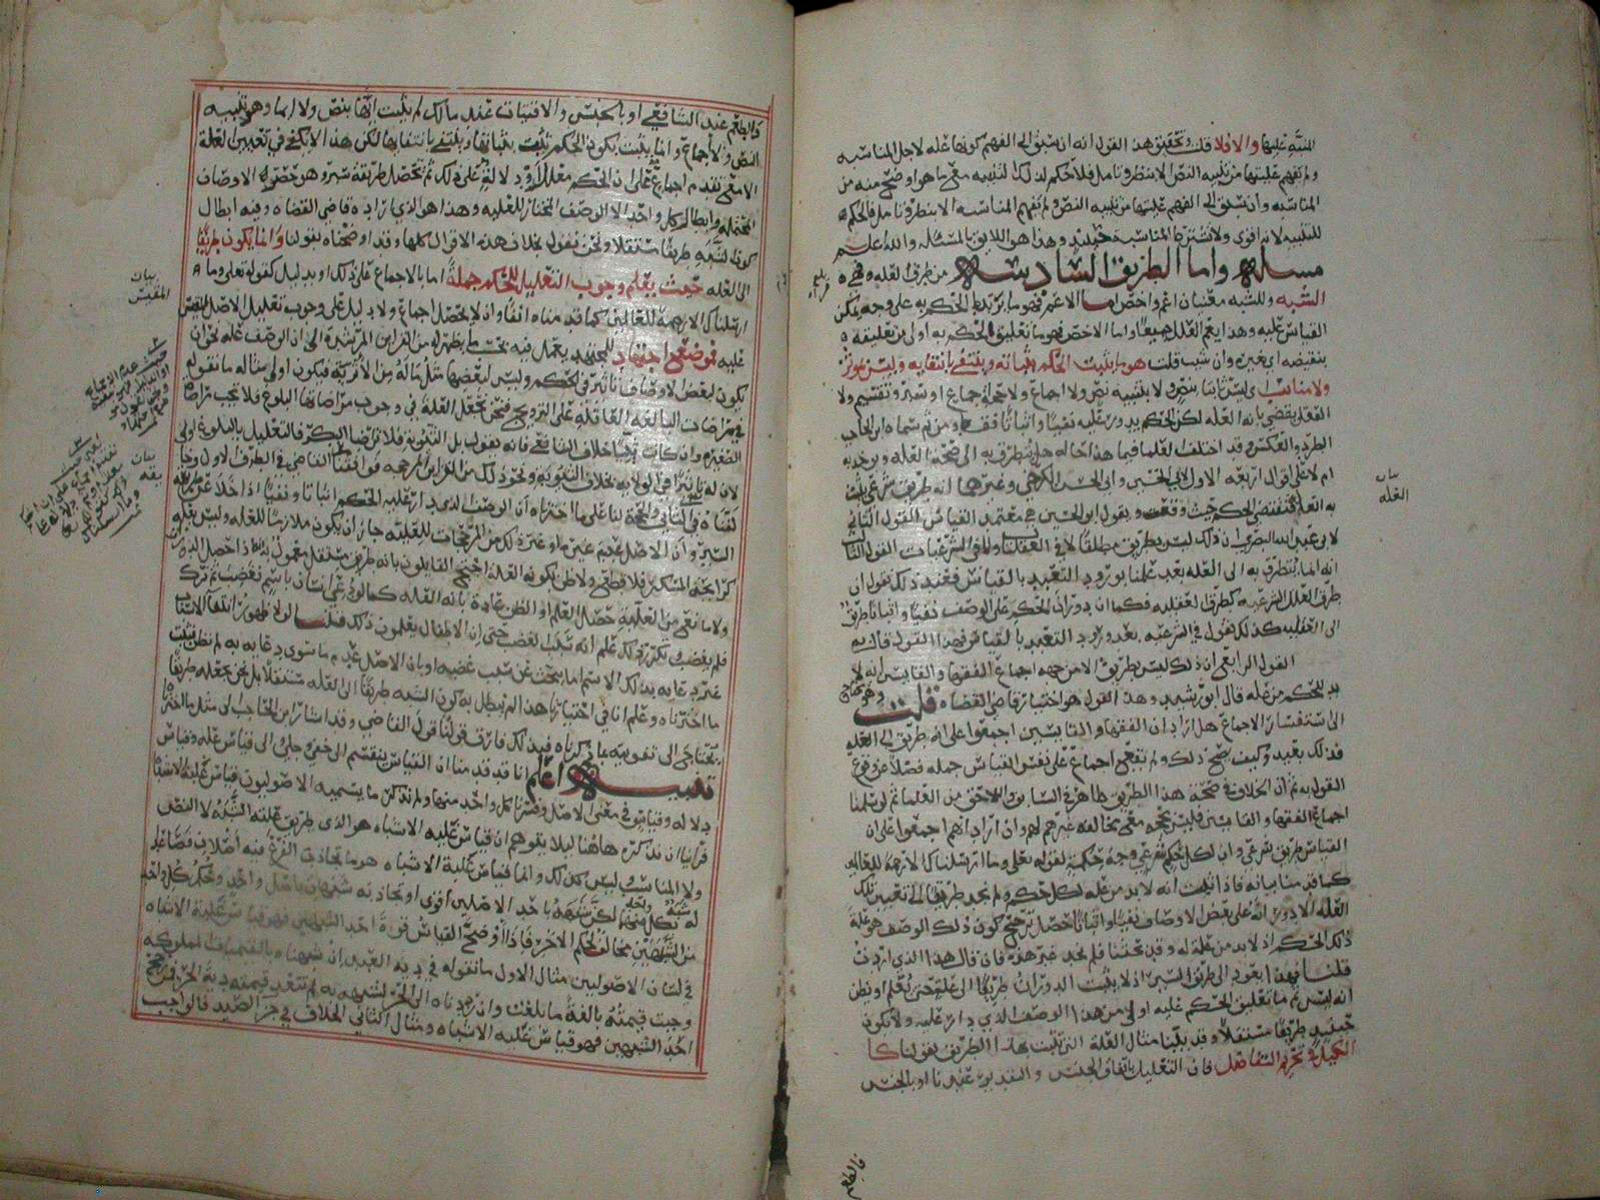 المنبه عليها والا فلا قلت وتحقيق هذا القول انه ان سبق الى الفهم كونها عله لاجل المناسبه
ولم تفهم عليتها من تنبيه النص الا بنظر وتامل فلا حكم لذلك التنبيه معنى ما هو اوضح منه من
المناسبه وان سبق الى الفهم عليتها من تنبيه النص ولم تفهم المناسبه الا بنظر وتامل فالحكم
للتنبيه لانه اقوى ولا تشترط المناسبه حينئذ وهذا هو اللايق بالمسئله والله اعلم
مسله واما الطريق السادسه من طرق العله فهي
الشبه وللشبه معنيان اعم واخص اما الاعم فهو ما يرتبط الحكم به على وجه يمكن
القياس عليه وهذا يعم العلل جميعا واما الاخص فهو ما تعليق الحكم به اولى من تعليقه
بنقيضه اي غيره وان شيت قلت هو ما يثبت الحكم بثباته وينتفي بانتفايه وليس بموثر
ولا مناسب اي ليس ثابتا بنص ولا بتنبيه نص ولا اجماع ولا حجة اجماع او سبر وتقسيم ولا
العقل يقضي بانه العله لكن الحكم يدور عليه نفيا واثباتا فقط ومن ثم سماه ابن الحاجب
الطرد والعكس وقد اختلف العلما فيما هذا حاله هل يتطرق به الى صحة العله ويوخذ به
ام لا على اقوال اربعه الاول لابي الحسين وابي الحسن الكرخي وغيرهما انه طريق شرعي يثبت
به العله فتقتضي الحكم حيث وقعت ويقول ابو الحسين هي معتمد القياس القول الثاني
لابي عبد الله البصري ان ذلك ليس بطريق مطلقا لا في العقليات ولا في الشرعيات القول الثالث
انه انما يتطرق به الى العله بعد علمنا بورود التعبد بالقياس فعند ذلك نقول ان
طرق العلل الشرعيه كطرق العقليه فكما ان دوران الحكم على الوصف نفيا واثباتا طريق
الى العقليه كذلك نقول في الشرعيه بعد ورود التعبد بالقياس فهذا القول قال به
القول الرابع ان ذلك ليس بطريق الا من جهة اجماع الفقها والقايسين انه لا
بد للحكم من عله قال ابو رشيد وهذا القول هو اختيار قاضي القضاه قلت وهو يحتاج
الى استفسار الاجماع هل اراد ان الفقها والقايسين اجمعوا على انه طريق الى العله
فذلك بعيد وكيف يصح ذلك ولم يقع اجماع على نفس القياس جمله فضلا عن فرع
القول به ثم ان الخلاف في صحة هذا الطريق ظاهر في السابق واللاحق من العلما ثم لو سلمنا
اجماع الفقها والقايسين فليس بحجه مع مخالفة غيرهم لهم وان اراد انهم اجمعوا على ان
القياس طريق شرعي وان لكل حكم شرعي وجه حكمة لقوله تعلى وما ارسلناك الا رحمة للعالمين
كما قدمنا بيانه فاذا ثبت انه لا بد من عله لكل حكم ولم نجد طريقا الى تعيين تلك
العله الا دورانه على بعض الاوصاف نفيا واثباتا حصل ترجيح كون ذلك الوصف هو علة
ذلك الحكم اذ لا بد من علة له وقد بحثنا فلم نجد غير هذه فان قال هذا الذي اردت
قلنا فهذا يعود الى طريق السبر اذ لا يثبت الدوران طريقا الى عله حتى نعلم او نظن
انه ليس ثم ما تعليق الحكم عليه اولى من هذا الوصف الذي دار عليه ولا يكون
حينيذ طريقا مستقلا وقد بينا مثال العلة التي تثبت بهذا الطريق بقولنا كا
الكيل في تحريم التفاضل فان التعليل باتفاق الجنس والتقدير عندنا او بالجنس
فالطعم
بيان العله
والطعم عند الشافعي او بالجنس والاقتيات عند مالك لم يثبت ايها بنص ولا ايما وهو تنبيه
النص ولا اجماع وانما يثبت بكون الحكم يثبت بثباتها وينتفي بانتفايها لكن هذا لا يكفي في تعيين العلة
الا مع تقدم اجماع على ان الحكم معلل او دلالة على ذلك ثم تحصل طريقة سبر وهو حصر الاوصاف
المحتمله وابطال كل واحد الا الوصف المختار للعليه وهذا هو الذي اراده قاضي القضاه وفيه ابطال
كون الشبه طريقا مستقلا ونحن نقول بخلاف هذه الاقوال كلها وقد اوضحناه بقولنا وانما يكون طريقا
الى العله حيث يعلم وجوب التعليل للحكم جملة اما بالاجماع على ذلك او بدليل كقوله تعلى وما
ارسلناك الا رحمة للعالمين كما قدمناه انفا واذ لا يحصل اجماع ولا دليل على وجوب تعليل الاصل المقيس
عليه فموضع اجتهاد للمجتهد يعمل فيه بحسب ما يظهر له من القراين المرشدة الى ان الوصف عله نحو ان
يكون لبعض الاوصاف تاثير في الحكم وليس لبعضها مثل ماله من الاثر فيكون اولى مثاله ما نقوله
في مراضات البالغه العاقله على التزويج فنحن نجعل العلة في وجوب مراضاتها البلوغ فلا تجب مراضاة
الصغيره وان كانت ثيبا خلاف الشافعي فانه يقول بل الثيوبه فلا تراضا البكر فالتعليل بالبلوغ اولى
لان له تاثيرا في الولايه بخلاف الثيوبه ونحو ذلك من القراين المرجحه فوافقنا القاضي في الطرف الاول وخا
لفناه في الثاني والحجة لنا على ما اخترناه ان الوصف الذي دار عليه الحكم اثباتا ونفيا اذا خلا عن طريقة
السبر وان الاصل عدم غيره او غير ذلك من المرجحات للعليه جاز ان يكون ملازما للعله وليس بعله
كرايحة المسكر فلا قطع ولا ظن بكونه العلة احتج القايلون بانه طريق مستقل بقولهم اذا حصل الدوران
ولا مانع من العلية حصل العلم او الظن عادة بانه العله كما لو دعي انسان باسم فغضب ثم ترك
فلم يغضب وتكرر ذلك علم انه سبب الغضب حتى ان الاطفال يعلمون ذلك قلنا لولا ظهور انتفا الاسباب
غير دعايه بذلك الاسم اما ببحث عن سبب غضبه او بان الاصل عدم ما سوى دعايه به لم نظن فثبت
ما اخترناه وعلم انا في اختيارنا هذا لم نبطل به كون الشبه طريقا الى العله مستقلا بل نحن نجعله طريقا
يحتاج الى تقويه بما ذكرناه فبذلك فارق قولنا قول القاضي وقد اشار ابن الحاجب الى مثل ما اخترناه
تنبيه اعلم انا قد قدمنا ان القياس ينقسم الى خفي وجلي والى قياس عله وقياس
دلاله وقياس في معنى الاصل وفسرنا كل واحد منها ولم نذكر ما يسميه الاصوليون قياس غلبة الاشباه
فراينا ان نذكره هاهنا ليلا يتوهم ان قياس غلبة الاشباه هو الذي طريق علته الشبه لا النص
ولا المناسب وليس كذلك وانما قياس غلبة الاشباه هو ما تجاذب الفرع فيه اصلان فصاعدا
له بكل منهما شبه لكن شبهه باحد الاصلين اقوى او تجاذبه شبهان باصل واحد وحكم كل واحد
من الشبهين مخالف لحكم الاخر فاذا اوضح القياس قوة احد الشبهين فهو قياس غلبة الاشباه
في لسان الاصوليين مثال الاول ما نقوله في دية العبد ان شبهناه بالقيميات المملوكه
وجبت قيمته بالغة ما بلغت وان رددناه الى الحر لشبهه به لم تتعد قيمته دية الحر فرجح
احد الشبهين فهو قياس غلبة الاشباه ومثال الثاني الخلاف في جزا الصيد فالواجب
بيان المقيس
بيان بقه